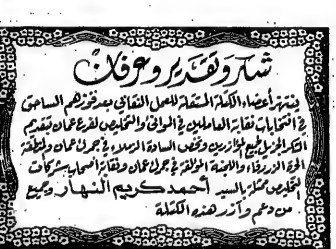 شكر وتقدير وعرفان
ينتهز أعضاء الكتلة المستقلة للعمل النقابي بعد فوزهم الساحق
في انتخابات نقابة العاملين في الموانئ والتخليص لفرع عمان بتقديم
الشكر الجزيل لجميع المؤازرين ونخص السادة الزملاء في جمرك عمان والمنطقة
الحرة الزرقاء واللجنة المؤقتة في جمرك عمان ونقابة أصحاب شركات
التخليص ممثلة بالسيد أحمد كريم النهار وجميع
من دعم وآزر هذه الكتلة